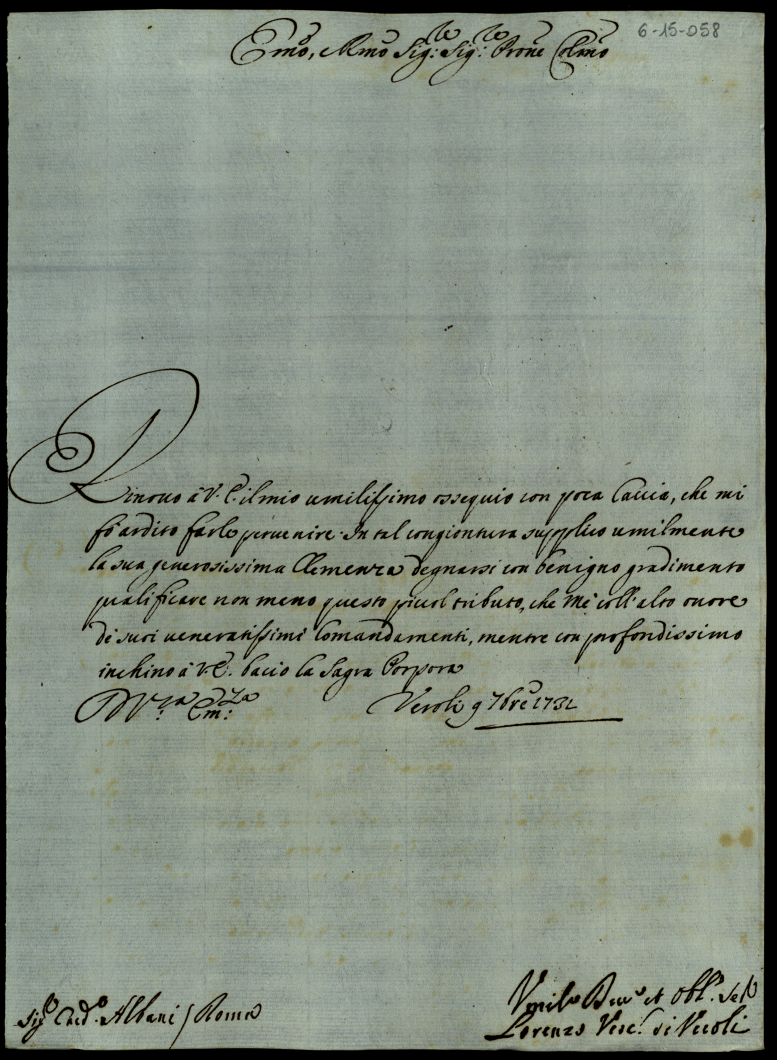 6-15-058
Emo, e Rmo Sig:re Sig:re Prone Colmo
Rinovo à V. E. il mio umilissimo ossequio con poca Caccia, che mi
fò ardito farle pervenire. In tal congiontura supplico umilmente
la sua generosissima Clemenza degnarsi con benigno gradimento
qualificare non meno questo picciol tributo, che Mè coll'alto onore
di suoi veneratissimi Comandamenti, mentre con profondissimo
inchino à V. E. bacio la Sagra Porpora
D V:ra Em:za Veroli 9 7bre 1731
Sig.re Card.e Albani / Roma
Umil.o Dev.o et Obl.o Se.re
Lorenzo Vesc.o di Veroli